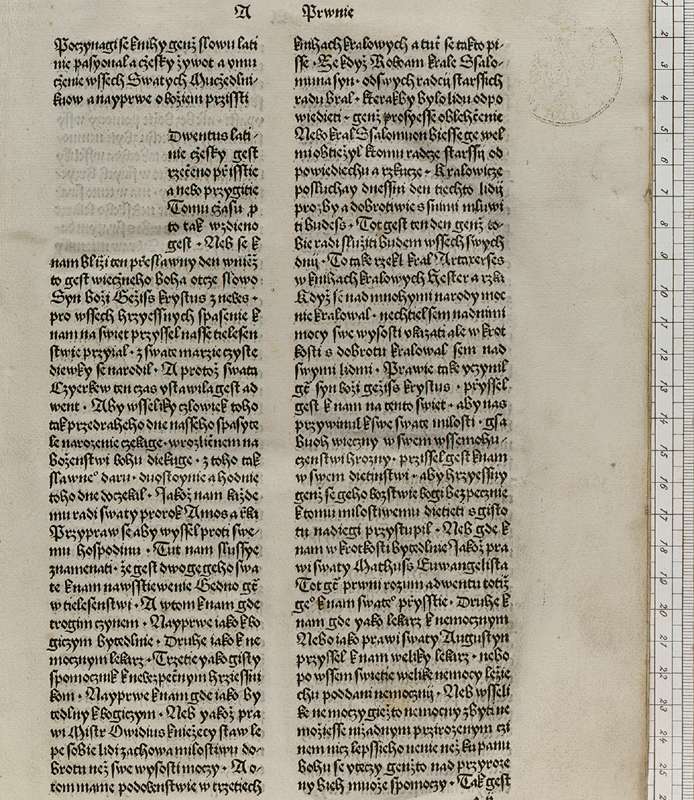 A Prwnie
Poczynagi se knihy genž slowu lati
nie pasyonal a cžesky žywot a vmu
cženie wssech Swatych Mucžedlni-
kuow a nayprwe o božiem przissti
Dwentus lati-
nie cžesky gest
rzecženo przisstie
a nebo przygitie
Tomu cžasu p
to tak wzdieno
gest · Neb se k
nam bliži ten přeslawny den w niež
to gest wiecžneho boha otcze slowo
Syn boži Gežiss krystus z nebes ·
pro wssech hrzyessnych spasenie k
nam na swiet przyssel nasse tielesen
stwie przyial · z swate marzie czyste
diewky se narodil · A protož swata
Czyerkew ten czas vstawila gest ad
went · Aby wsseliky cžlowiek toho
tak przedraheho dne nasseho spasyte
le narozenie cžekage · w rozlicžnem na
boženstwi bohu diekuge · z toho tak
slawneo daru · duostoynie a hodnie
toho dne docžekil · Jakož nam każde
mu radi swaty prorok Amos a rzka
Przypraw se aby wyssel proti swe-
mu hospodinu · Tut nam slussye
znamenati · že gest dwogegeho swa
te k nam nawsstiewenie Gedno gest
w tielesenstwi · A w tom k nam gde
trogim czynem · Nayprwe iako k bo
giczym bytedlnie · Druhe iako k ne
mocznym lekarz · Trzetie yako gisty
spomocznik k nebezpecžnym hrziessni
kom · Nayprwe k nam gde iako by
tedlny k bogiczym · Neb yakož pra
wi Mistr Owidius kniežeczy staw le
pe sobie lidi zachowa milostiwu do-
brotu než swe wysosti moczy · A o-
tom mame podobenstwie w trzetiech
knihach kralowych a tut se takto pi-
sse · Ze když Roboam krale Ssalo-
muna syn · od swych radczij starssich
radu bral · kterak by bylo lidu odpo
wiedieti · genž prosyesse oblehcženie
Nebo kral Ssalomuon biesse ge wel
mi obtiežyl k tomu radcze starssij od
powiediechu a rzkucze · Kralowicze
posluchay dnessni den tiechto lidij
prozby a dobrotiwie s nimi mluwi
ti budess · Tot gest ten den genž to-
bie radi služiti budem wssech swych
dnij · To take rzekl kral Artaxerses
w knihach kralowych Hester a rzka
Když se nad mnohymi narody moc
nie kralowal · nechtiel sem nad nimi
moczy swe wysosti vkazati ale w krot
kosti s dobrotu kralowal sem nad
swymi lidmi · Prawie take vcžynil
gest syn boži gežiss krystus · przyssel
gest k nam na tento swiet · aby nas
przywinul k swe swate milosti · gsa
buoh wiecžny w swem wssemohu-
czenstwi hrozny · przissel gest k nam
w swem dietinstwi · aby hrzyessny
genž se geho božstwie bogi bezpecžnie
k tomu milostiwemu dietieti s gisto
tu nadiegi przystupil · Neb gde k
nam w krotkosti bytedlnie Jakož pra
wi swaty Mathuss Euwangelista
Tot gest prwni rozum adwentu totiž
geo k nam swateo przysstie · Druhe k
nam gde yako lekarz k nemocznym
Nebo iako prawi swaty Augustyn
przyssel k nam weliky lekarz · nebo
po wssem swietie welike nemocy ležie
chu poddani nemocznij · Neb wsseli
ke nemoczy giežto nemoczny zbyti ne
možiesse nižadnym przirozenym czi
nem nicz lepssieho nenie než ku panu
bohu se vteczy genžto nad przyroze
ny bieh muože spomoczy · Tak gest